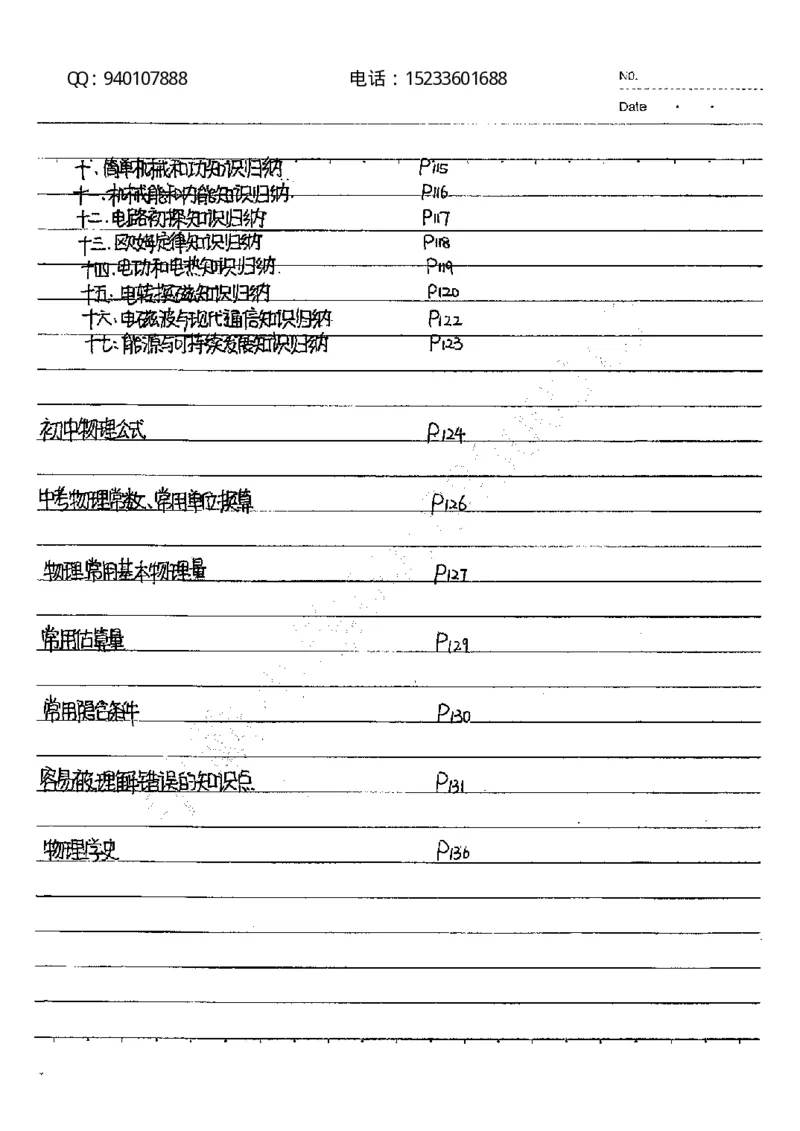 QQ：940107888 电话：15233601688 NO.
Date
十、简单机械和功知识归纳 P115
十一、机械能和内能知识归纳 P116
十二、电路初探知识归纳 P117
十三、欧姆定律知识归纳 P118
十四、电功和电热知识归纳 P119
十五、电转换磁知识归纳 P120
十六、电磁波与现代通信知识归纳 P122
十七、能源与可持续发展知识归纳 P123
初中物理公式 P124
中考物理常数、常用单位换算 P126
物理常用基本物理量 P127
常用估算量 P129
常用隐含条件 P130
容易被理解错误的知识点 P131
物理学史 P136